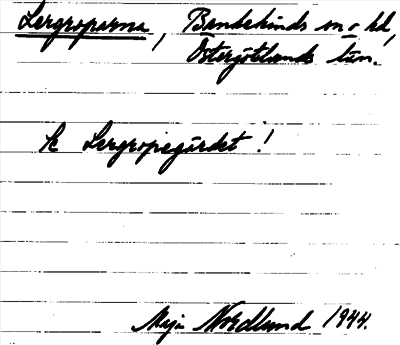 Lergroparna, Bankekinds sn o hd,
Östergötlands län.
se Lergropegärdet!
Maja Nordlund 1944.